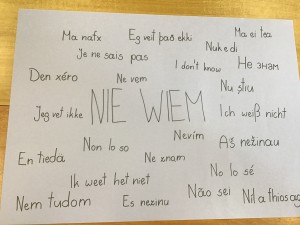 Ma nafx
Eg veit það ekki
Ma ei tea
Je ne sais pas
Nuk e di
I don't know
Не знам
Den xéro
Ne vem
Nu știu
Jeg vet ikke
NIE WIEM
Ich weiß nicht
Non lo so
Nevím
Aš nežinau
En tiedä
Ne znam
No lo sé
Ik weet het niet
Não sei
Nem tudom
Es nezinu
Níl a fhios ag